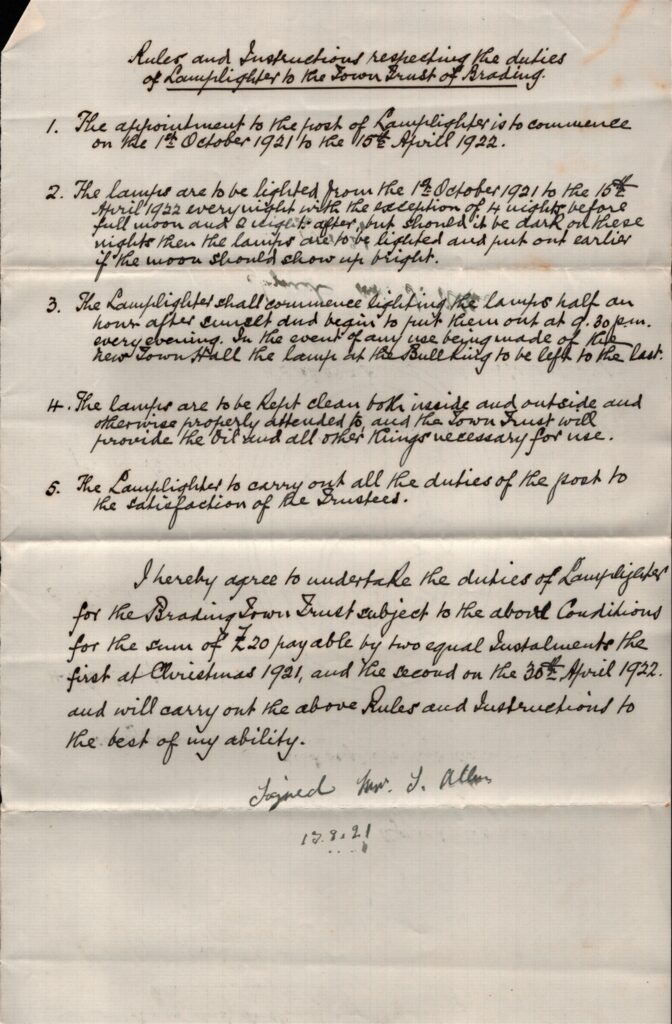 Rules and Instructions respecting the duties
of Lamplighter to the Town Trust of Brading.
1. The appointment to the post of Lamplighter is to commence
on the 1st October 1921 to the 15th April 1922.
2. The lamps are to be lighted from the 1st October 1921 to the 15th
April 1922 every night with the exception of 4 nights before
full moon and 2 nights after, but should it be dark on these
nights then the lamps are to be lighted and put out earlier
if the moon should show up bright.
3. The Lamplighter shall commence lighting the lamps half an
hour after sunset and begin to put them out at 9.30 p.m.
every evening. In the event of any use being made of the
new Town Hall the lamp at the Bull Ring to be left to the last.
4. The lamps are to be kept clean both inside and outside and
otherwise properly attended to, and the Town Trust will
provide the Oil and all other things necessary for use.
5. The Lamplighter to carry out all the duties of the post to
the satisfaction of the Trustees.
I hereby agree to undertake the duties of Lamplighter
for the Brading Town Trust subject to the above Conditions
for the sum of £20 payable by two equal Instalments the
first at Christmas 1921, and the second on the 30th April 1922.
and will carry out the above Rules and Instructions to
the best of my ability.
Signed